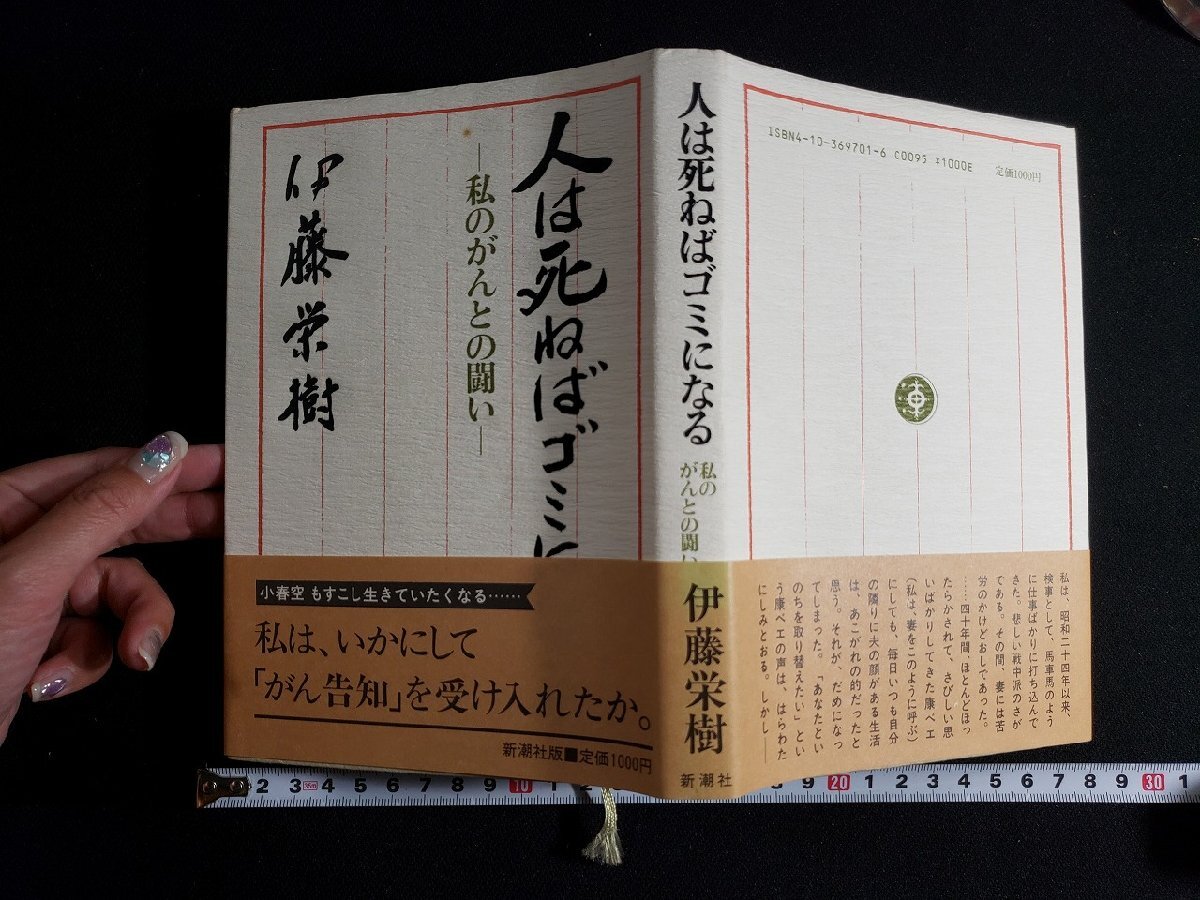 人は死ねばゴミに
―私のがんとの闘い―
伊藤栄樹
小春空 もすこし生きていたくなる……
私は、いかにして
「がん告知」を受け入れたか。
新潮社版■定価1000円
人は死ねばゴミになる
私の
がんとの闘い
伊藤栄樹
新潮社
ISBN4-10-369701-6 C0095 ¥1000E
定価1000円
私は、昭和二十四年以来、
検事として、馬車馬のよう
に仕事ばかりに打ち込んで
きた。悲しい戦中派のさが
である。その間、妻には苦
労のかけどおしであった。
……四十年間、ほとんどほっ
たらかされて、さびしい思
いばかりしてきた康ベエ
(私は、妻をこのように呼ぶ)
にしても、毎日いつも自分
の隣りに夫の顔がある生活
は、あこがれの的だったと
思う。それが、だめになっ
てしまった。「あなたとい
のちを取り替えたい」とい
う康ベエの声は、はらわた
にしみとおる。しかし――
2 3 4 5 6 7 8 9 10 1 2
8 9 20 1 2 3 4 5 6 7 8 9 30 1